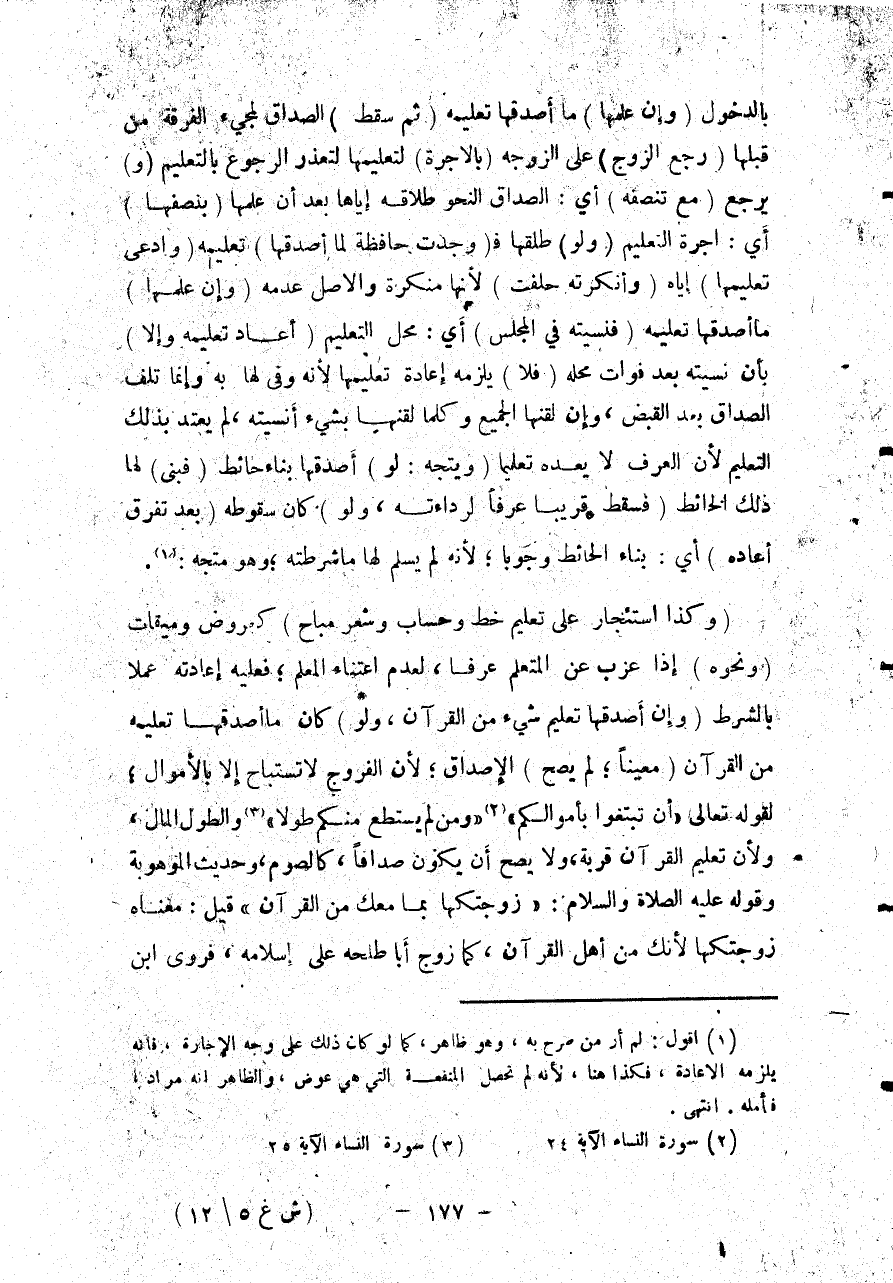 بالدخول ( وإن علمها ) ما أصدقها تعليمه ( ثم سقط ) الصداق لمجيء الفرقة من
قبلها ( رجع الزوج ) على الزوجه ( بالاجرة ) لتعليمها لتعذر الرجوع بالتعليم ( و )
يرجع ( مع تنصفه ) أي : الصداق النحو طلاقه إياها بعد أن علمها ( بنصفها )
أي : اجرة التعليم ( ولو ) طلقها فـ ( وجدت حافظة لما أصدقها ) تعليمه ( وادعى
تعليمها ) إياه ( وأنكرته حلفت ) لأنها منكرة والاصل عدمه ( وإن علمها )
ماأصدقها تعليمه ( فنسيته في المجلس ) أي : محل التعليم ( أعاد تعليمه وإلا )
بأن نسيته بعد فوات محله ( فلا ) يلزمه إعادة تعليمها لأنه وفى لها به وإنما تلف
الصداق بعد القبض ، وإن لقنها الجميع وكلما لقنها بشيء أنسيته ، لم يعتد بذلك
التعليم لأن العرف لا يعده تعليما ( ويتجه : لو ) أصدقها بناء حائط ( فبنى ) لها
ذلك الحائط ( فسقط قريبا عرفاً لرداءته ، ولو ) كان سقوطه ( بعد تفرق
أعاده ) أي : بناء الحائط وجوبا ؛ لأنه لم يسلم لها ماشرطته ؛ وهو متجه : (١) .
( وكذا استئجار على تعليم خط وحساب وشعر مباح ) كعروض وميقات
( ونحوه ) إذا عزب عن المتعلم عرفا ، لعدم اعتناء المعلم ؛ فعليه إعادته عملا
بالشرط ( وإن أصدقها تعليم شيء من القرآن ، ولو ) كان ماأصدقها تعليمه
من القرآن ( معيناً ؛ لم يصح ) الإصداق ؛ لأن الفروج لاتستباح إلا بالأموال ؛
لقوله تعالى «أن تبتغوا بأموالكم» (٢) «ومن لم يستطع منكم طولا» (٣) والطول المال ،
ولأن تعليم القرآن قربة ، ولا يصح أن يكون صداقاً ، كالصوم ، وحديث الموهوبة
وقوله عليه الصلاة والسلام : « زوجتكها بما معك من القرآن » قيل : معناه
زوجتكها لأنك من أهل القرآن ، كما زوج أبا طلحه على إسلامه ، فروى ابن
(١) اقول : لم أر من صرح به ، وهو ظاهر ، كما لو كان ذلك على وجه الإجارة ، فانه
يلزمه الاعادة ، فكذا هنا ، لأنه لم تحصل المنفعة التي هي عوض ، والظاهر انه مراد ؛
فأمله . انتهى .
(٢) سورة النساء الآية ٢٤ (٣) سورة النساء الآية ٢٥
- ١٧٧ - (ش غ ٥ \ ١٢)